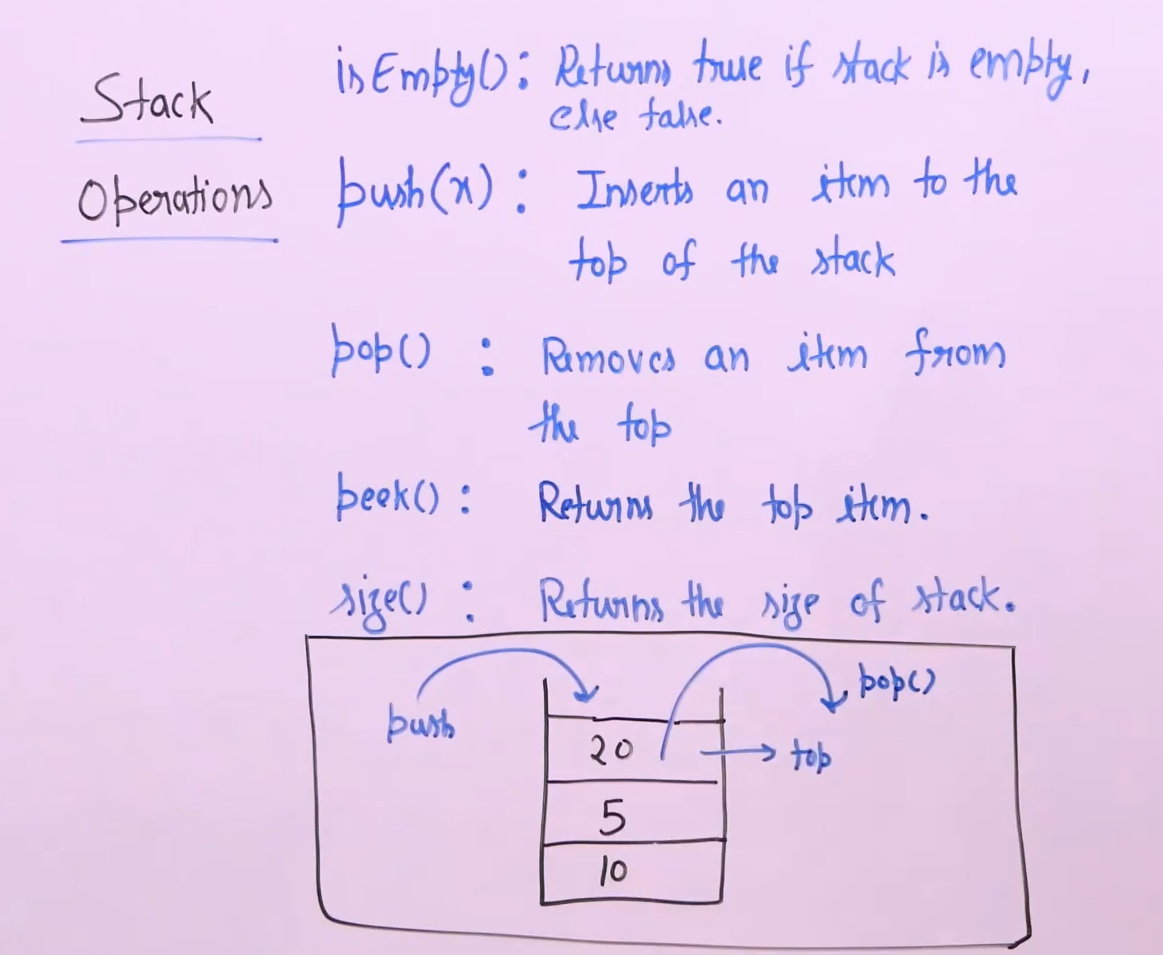 Stack
Operations
isEmpty(): Returns true if stack is empty,
else false.
push(x) : Inserts an item to the
top of the stack
pop() : Removes an item from
the top
peek() : Returns the top item.
size() : Returns the size of stack.
push
pop()
20
top
5
10